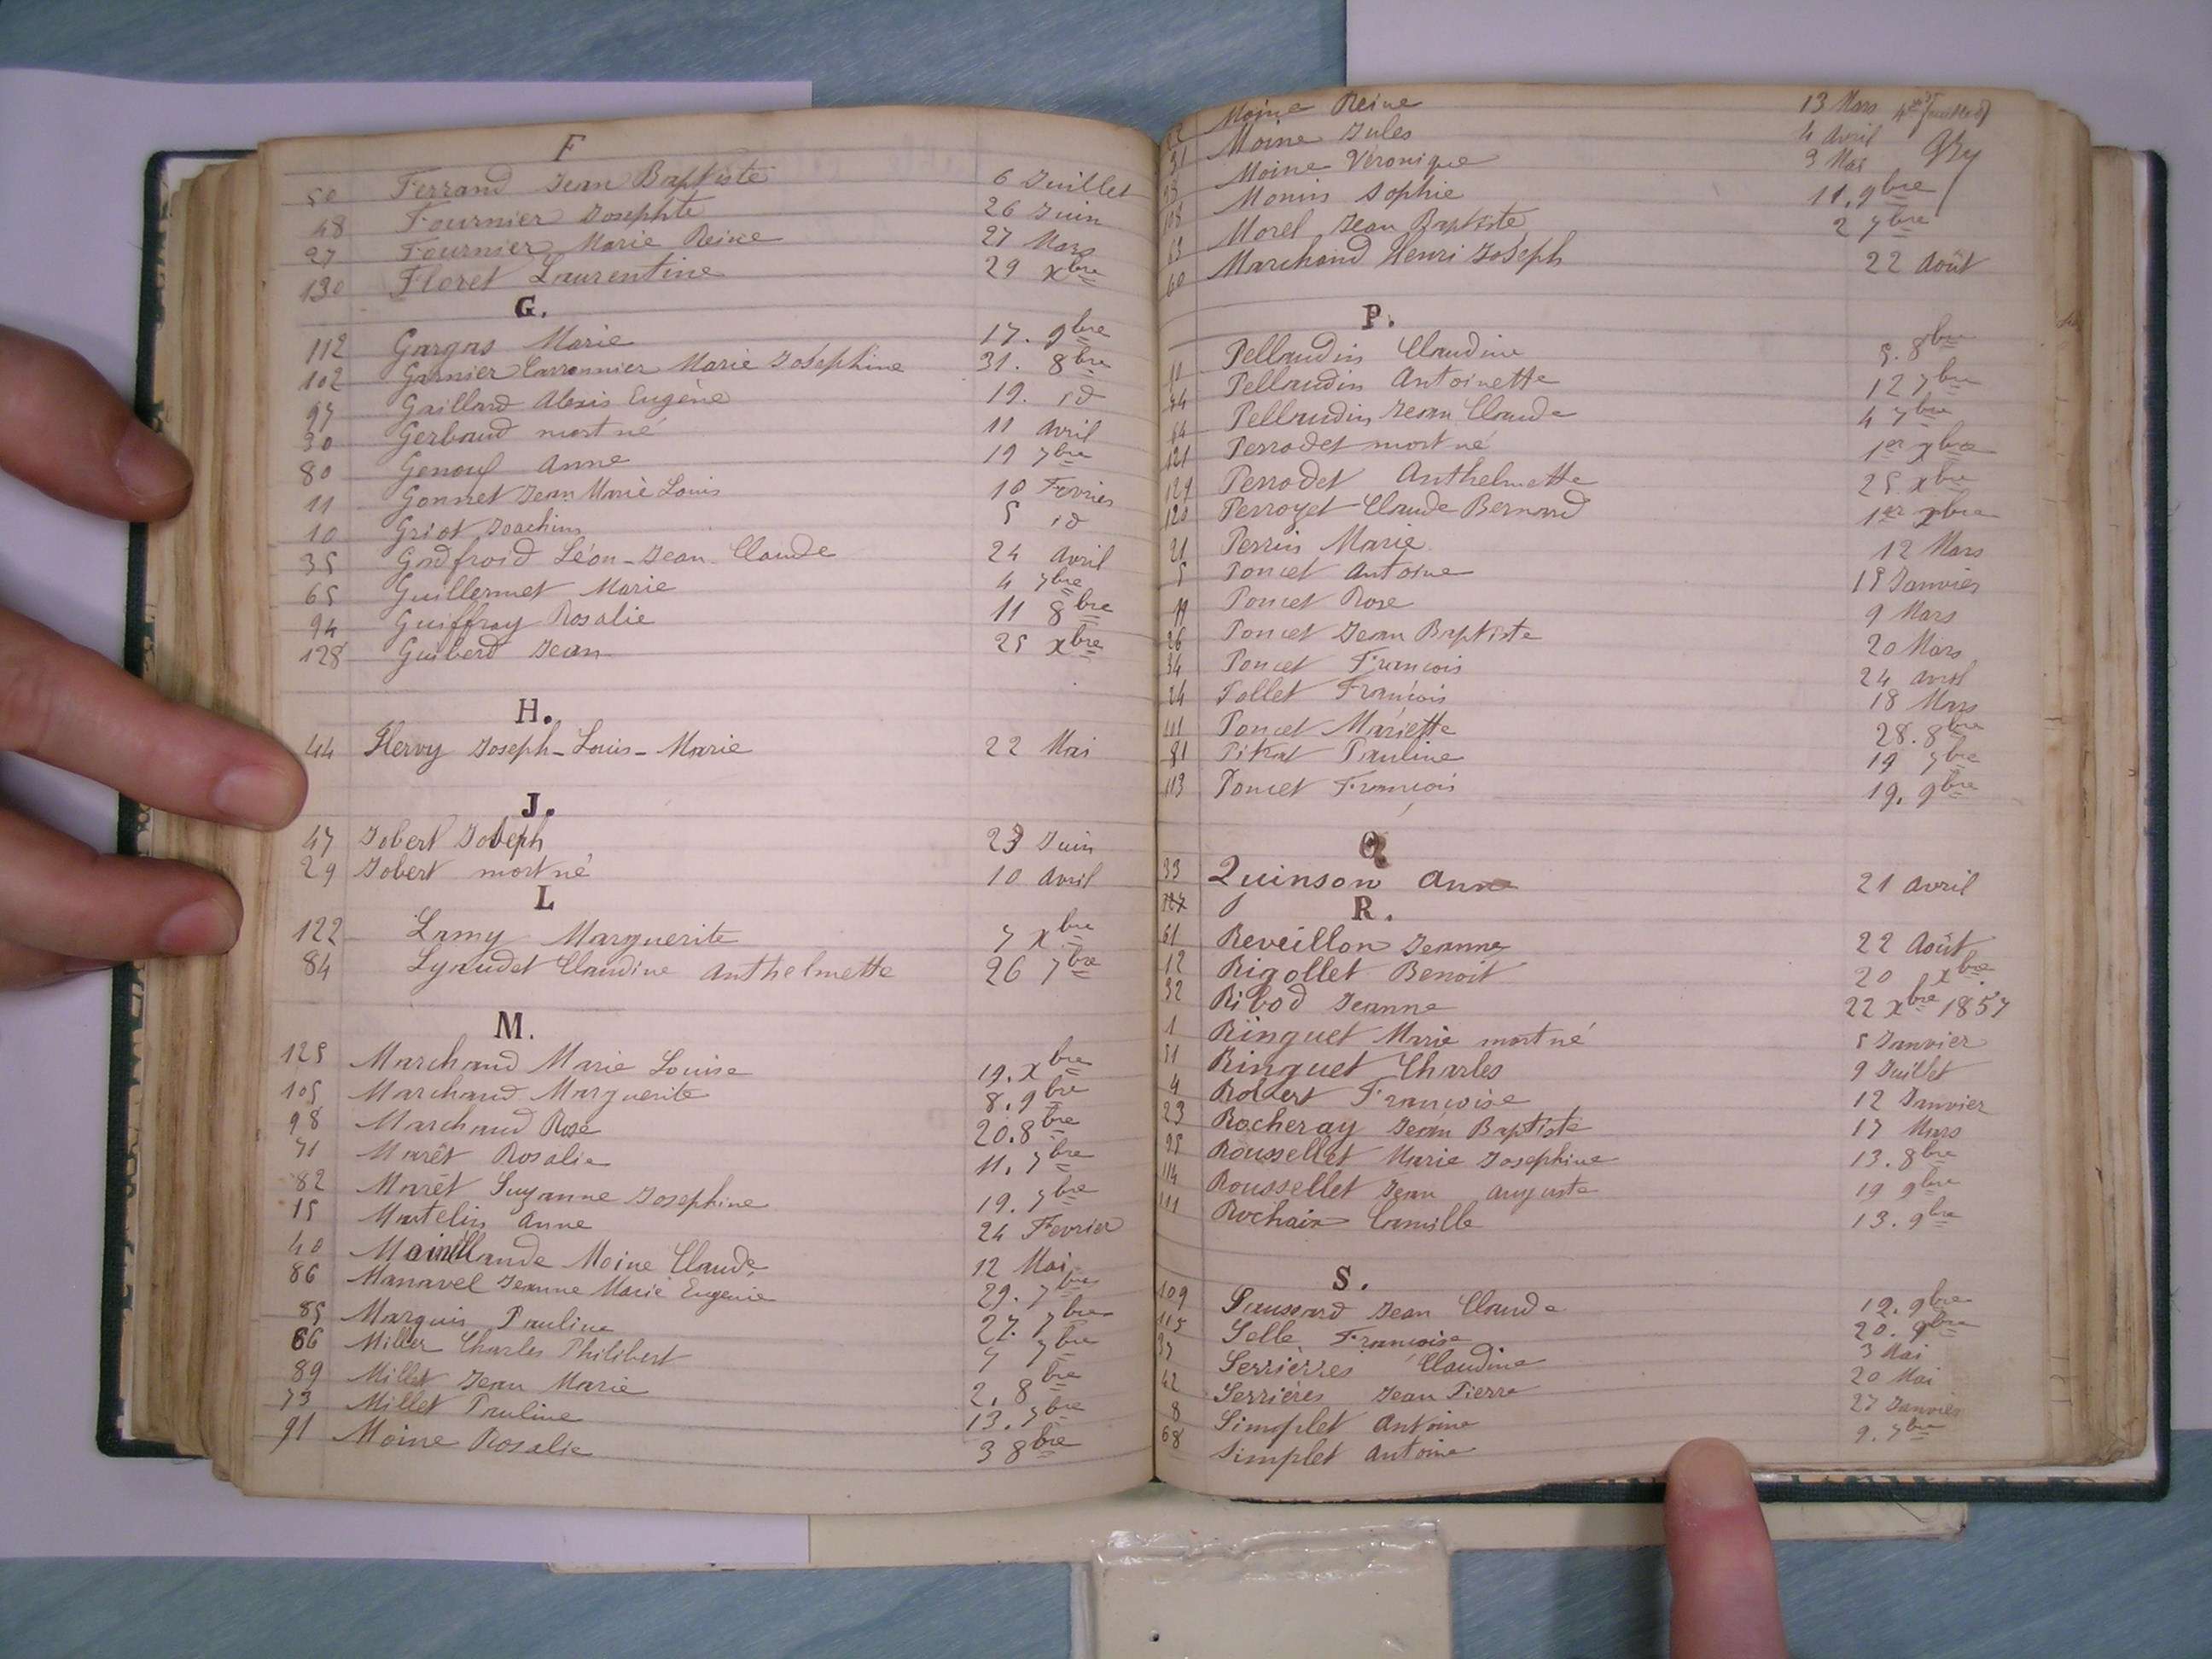 F
50 Ferrand Jean Baptiste 6 Juillet
48 Fournier Josephte 26 Juin
27 Fournier Marie Reine 27 Mars
130 Floret Laurentine 29 xbre
G.
112 Gargas Marie 17. 9bre
102 Garnier Carronnier Marie Joséphine 31. 8bre
97 Gaillard Alexis Eugène 19. id
30 Gerbaud mort né 11 avril
80 Genouf Anne 19 7bre
11 Gonnet Jean Marie Louis 10 Fevrier
10 Griot Joachim 5 id
35 Godfroid Léon-Jean-Claude 24 avril
65 Guillermet Marie 4 7bre
94 Guiffray Rosalie 11 8bre
128 Guiberd Jean 25 xbre
H.
44 Hervy Joseph-Louis-Marie 22 Mai
J.
47 Jobert Joseph 23 Juin
29 Jobert mort né 10 avril
L
122 Lamy Marguerite 7 xbre
84 Lyaudet Claudine Anthelmette 26 7bre
M.
125 Marchand Marie Louise 19. xbre
105 Marchand Marguerite 8. 9bre
98 Marchand Rose 20. 8bre
71 Marêt Rosalie 11. 7bre
82 Marêt Suzanne Josephine 19. 7bre
15 Martelin Anne 24 Fevrier
40 Moine Claude 12 Mai
86 Manavel Jeanne Marie Eugenie 29. 7bre
85 Marquis Pauline 27. 7bre
66 Millet Charles Philibert 7 7bre
89 Millet Jean Marie 2. 8bre
73 Millet Pauline 13. 7bre
91 Moine Rosalie 3 8bre
Moine Reine 13 Mars
31 Moine Jules 4 avril
Moine Véronique 3 Mai
Monin Sophie 11. 9bre
63 Morel Jean Baptiste 2 7bre
60 Marchand Henri Joseph 22 Août
P.
Pellaudin Claudine 5. 8bre
Pellaudin Antoinette 12 7bre
64 Pellaudin Jean Claude 4 7bre
121 Perrodet mort né 1er xbre
129 Perrodet Anthelmette 25 xbre
120 Perroyet Claude Bernard 1er xbre
21 Perrin Marie 12 Mars
5 Poncet Antoine 15 Janvier
19 Poncet Rose 9 Mars
26 Poncet Jean Baptiste 20 Mars
34 Poncet François 24 avril
24 Pollet François 18 Mars
101 Poncet Mariette 28. 8bre
81 Pitrat Pauline 19 7bre
113 Poncet François 19. 9bre
Q
33 Quinson Anne 21 avril
127 R.
61 Reveillon Jeanne 22 Août
12 Rigollet Benoit 20 xbre
32 Ribod Jeanne 22 xbre 1857
1 Ringuet Marie mort né 5 Janvier
51 Ringuet Charles 9 Juillet
4 Robert Françoise 12 Janvier
23 Rocheray Jean Baptiste 17 Mars
95 Roussellet Marie Josephine 13. 8bre
114 Roussellet Jean Auguste 19 9bre
111 Rochaix Camille 13. 9bre
S.
109 Saussard Jean Claude 12. 9bre
115 Selle Françoise 20. 9bre
37 Serrières Claudine 3 Mai
42 Serrières Jean Pierre 20 Mai
8 Simplet Antoine 27 Janvier
68 Simplet Antoine 9. 7bre